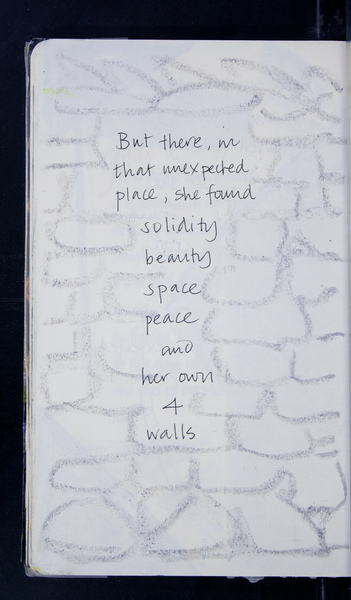 But there, in
that unexpected
place, she found
solidity
beauty
space
peace
and
her own
4
walls